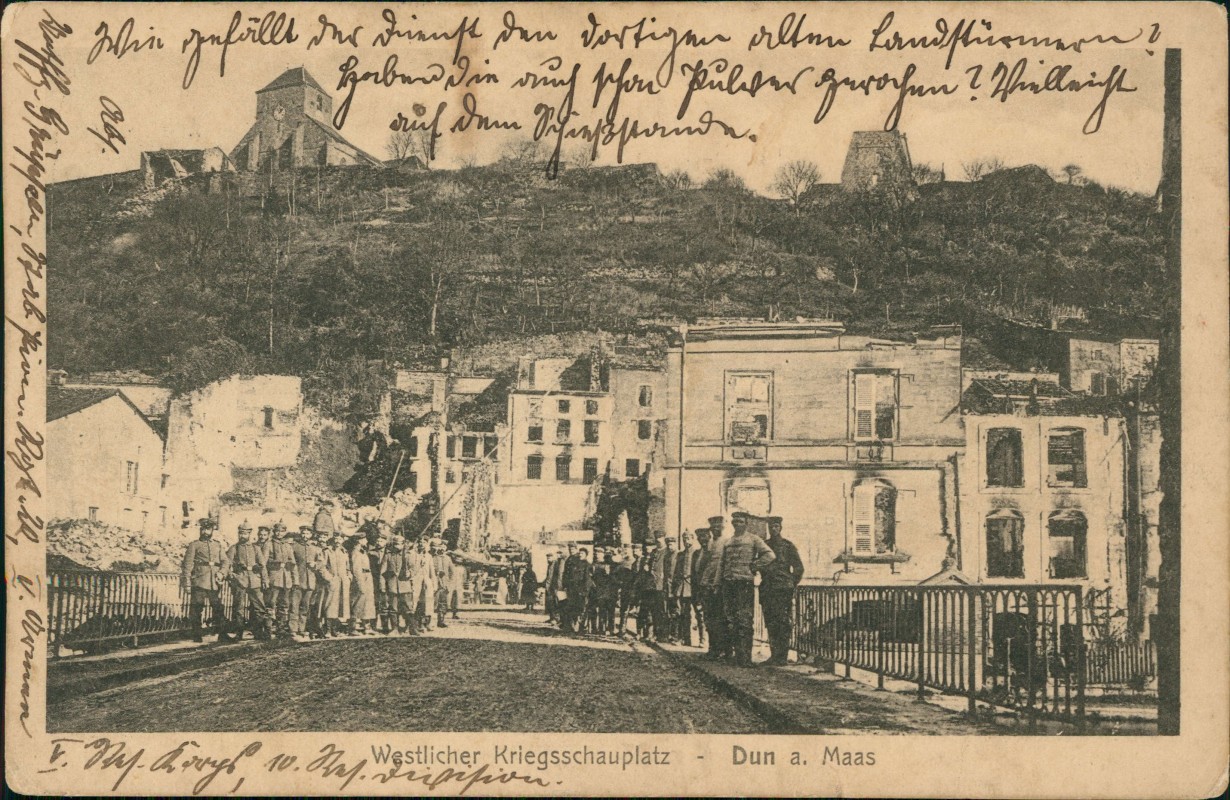 Wie gefällt der Dienst den dortigen alten Landstürmern?
Haben die auch schon Pulver gerochen? Vielleicht
auf dem Schießstande.
Abs.
V. Res. Korps, 10. Res. Division.
Westlicher Kriegsschauplatz - Dun a. Maas